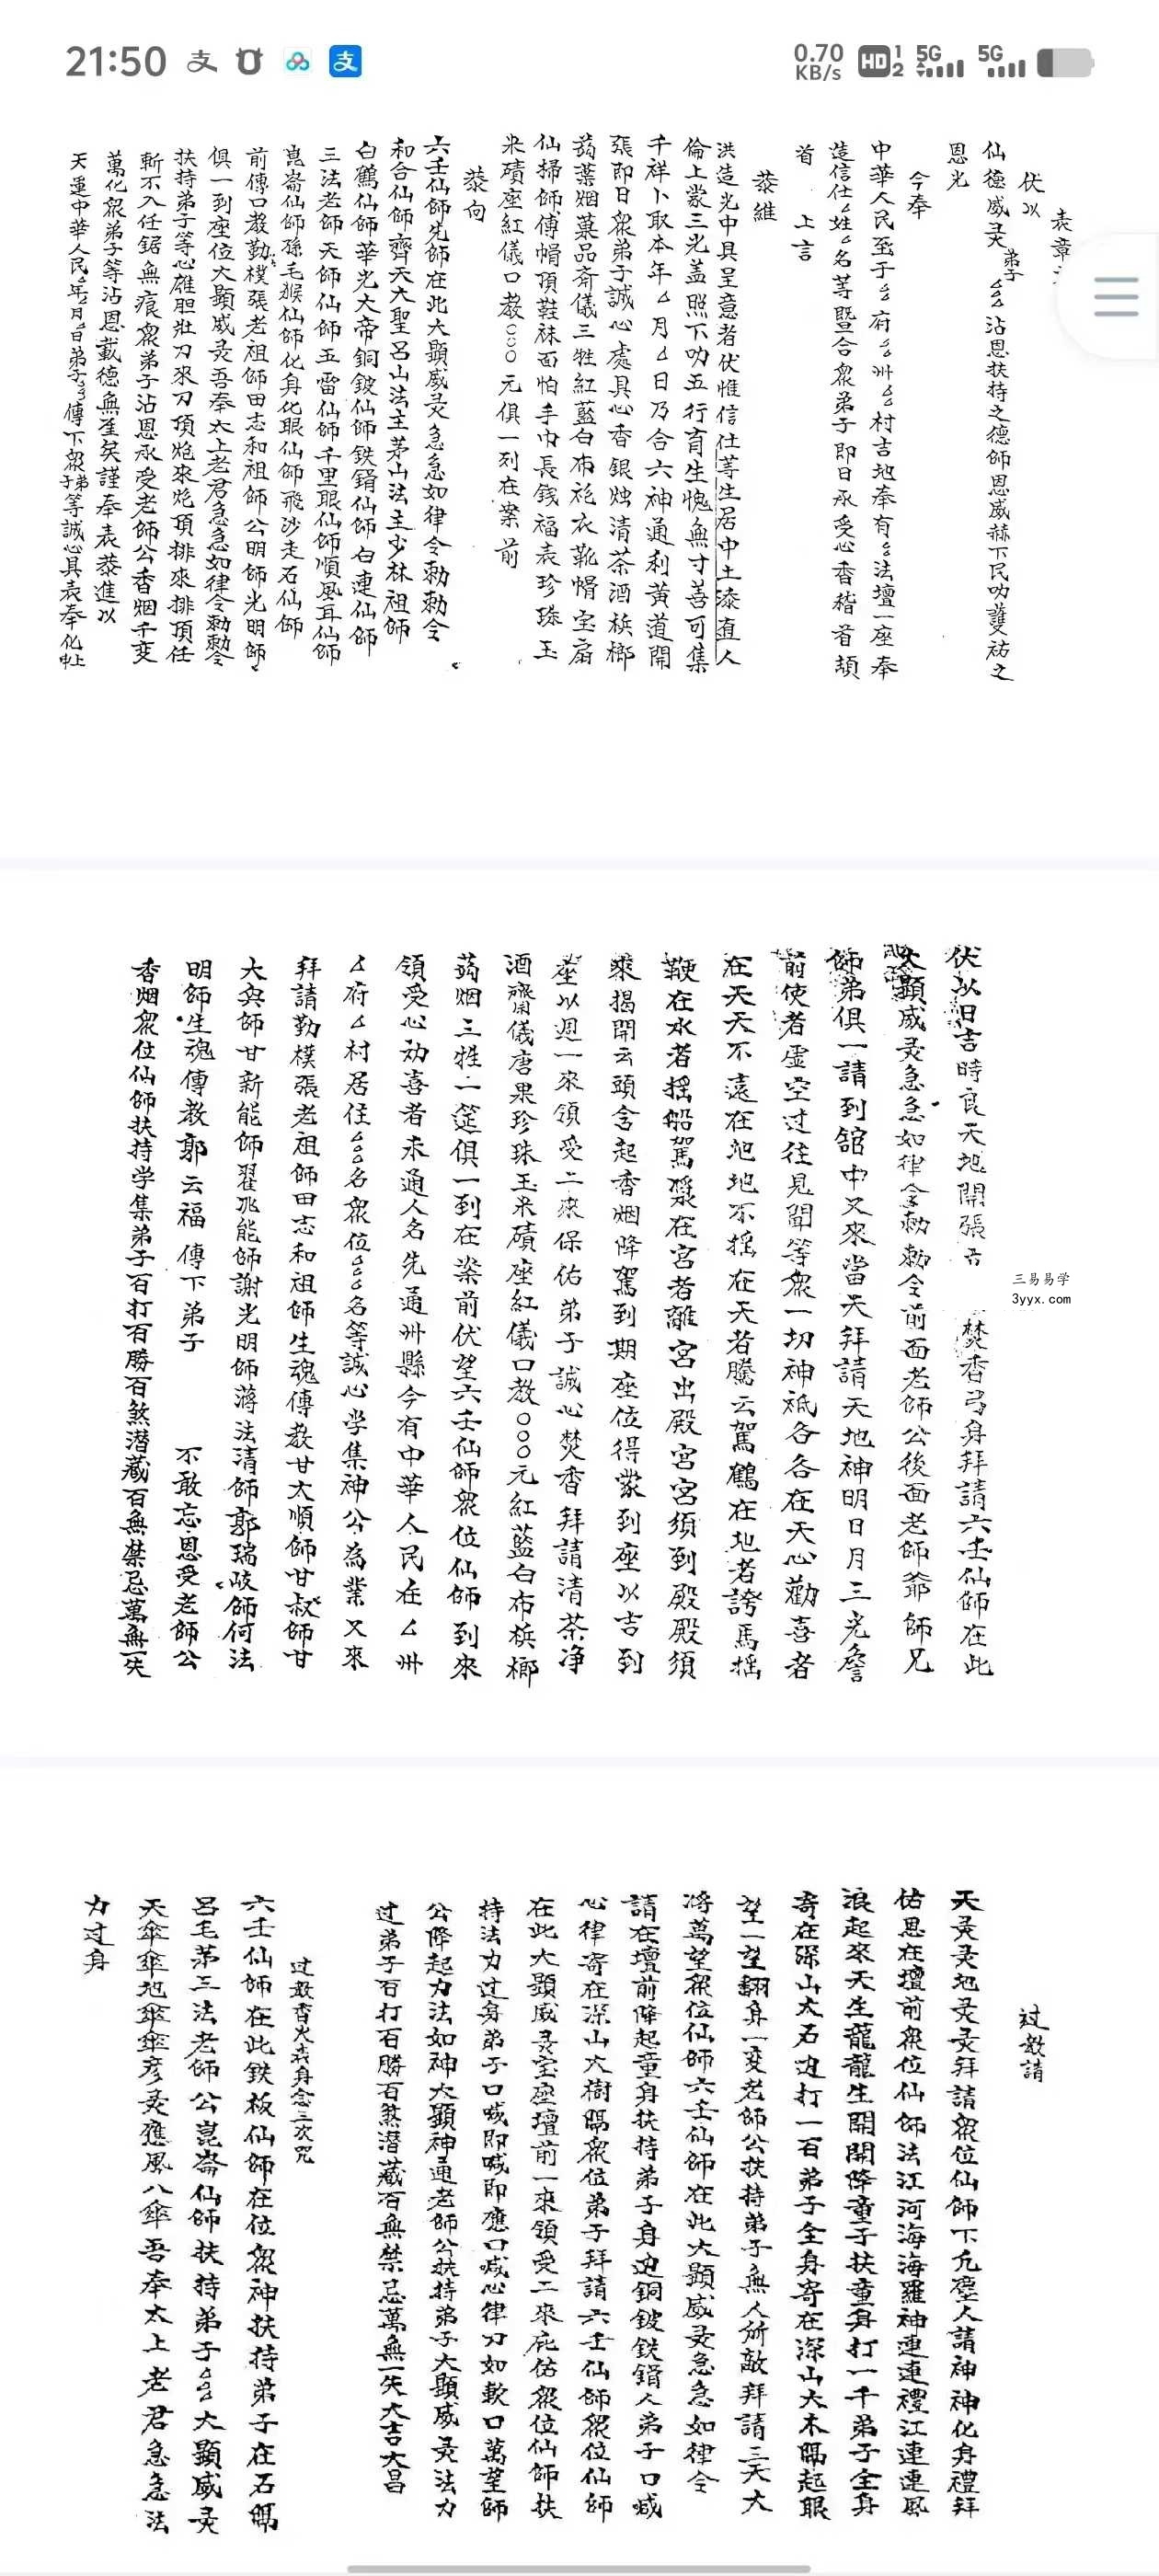 21:50
0.70 KB/s HD 1 2 5G 5G
表章
伏以
仙德威灵 弟子 沾恩扶持之德師恩威赫下民叨護祐之
恩光
今奉
中華人民 至于 府 州 村吉地奉有 法壇一座奉
信仕 姓 名等暨合眾弟子即日承受心香稽首頡
首 上言
恭維
洪造光中具呈意者伏惟信仕等生居中土添直人
倫上蒙三光蓋照下叨五行育生愧無寸善可集
千祥卜取本年厶月厶日乃合六神通利黃道開
張即日眾弟子誠心處具心香銀烛清茶酒梹榔
蒟葉烟菓品斎儀三牲紅藍白布袍衣靴帽宝扇
仙掃師傅帽頂鞋袜面怕手巾長錢福表珍珠玉
米磧座紅儀口教○○○元俱一列在案前
恭向
六壬仙師先師在此大顯威灵急急如律令勅勅令
和合仙師齊天大聖呂山法主茅山法主少林祖師
白鶴仙師華光大帝銅鈸仙師鉄銷仙師白連仙師
三法老師天師仙師玉雷仙師千里眼仙師順風耳仙師
崑崙仙師孫毛猴仙師化身化眼仙師飛沙走石仙師
前傳口教勤樸張老祖師田志和祖師公明師光明師
俱一到座位大顯威灵吾奉太上老君急急如律令勅勅令
扶持弟子等心雄胆壯刀來刀頂炮來炮頂排來排頂任
斬不入任鋸無痕眾弟子沾恩承受老師公香烟千变
萬化眾弟子等沾恩載德無 矣謹奉表恭進以
天運中華人民 年 月 日弟子 傳下眾弟子等誠心具表奉化 上
伏以日吉時良天地開張 焚香弓身拜請六壬仙師在此
大顯威灵急急如律令勅勅令前面老師公後面老師爺師兄
師弟俱一請到舘中又來當天拜請天地神明日月三光簷
前使者虛空过往見聞等眾一切神祇各各在天心勸喜者
在天天不遠在地地不摇在天者騰云駕鶴在地者誇馬摇
鞭在水者摇船駕漿在宮者離宮出殿宮宮須到殿殿須
來揭開云頭含起香烟降駕到期座位得蒙到座以吉到
座以週一來領受二來保佑弟子誠心焚香拜請清茶净
酒齋儀唐果珍珠玉米磧座紅儀口教○○○元紅藍白布梹榔
蒟烟三牲一筵俱一到在案前伏望六壬仙師眾位仙師到來
領受心劝喜者未通人名先通州縣今有中華人民在厶州
厶府厶村居住 名眾位 名等誠心学集神公為業又來
拜請勤樸張老祖師田志和祖師生魂傳教甘大順師甘叔師甘
大興師甘新能師翟兆能師謝光明師蔣法清師郭瑞岐師何法
明師生魂傳教郭云福 傳下弟子 不敢忘恩受老師公
香烟眾位仙師扶持学集弟子百打百勝百煞潜藏百無禁忌萬無一失
三易易学
3yyx.com
过教請
天灵灵地灵灵拜請眾位仙師下凢塵人請神神化身禮拜
佑恩在壇前眾位仙師法江河海海羅神連連禮江連連風
浪起來天生龍龍生開開降童子扶童身打一千弟子全身
寄在深山大石边打一百弟子全身寄在深山大木隅起眼
望一望翻身一变老師公扶持弟子無人所敵拜請三天大
將萬望眾位仙師六壬仙師在此大顯威灵急急如律令
請在壇前降起童身扶持弟子身边銅鈸鉄銷人弟子口喊
心律寄在深山大樹隅眾位弟子拜請六壬仙師眾位仙師
在此大顯威灵宝座壇前一來領受二來庇佑眾位仙師扶
持法力过身弟子口喊即喊即應口喊心律刀如軟口萬望師
公降起力法如神大顯神通老師公扶持弟子大顯威灵法力
过弟子百打百勝百煞潜藏百無禁忌萬無一失大吉大昌
过教香火表身念三次咒
六壬仙師在此鉄板仙師在位眾神扶持弟子在石隅
呂毛茅三法老師公崑崙仙師扶持弟子 大顯威灵
天傘傘地傘傘彦灵應風八傘吾奉太上老君急急法
力过身